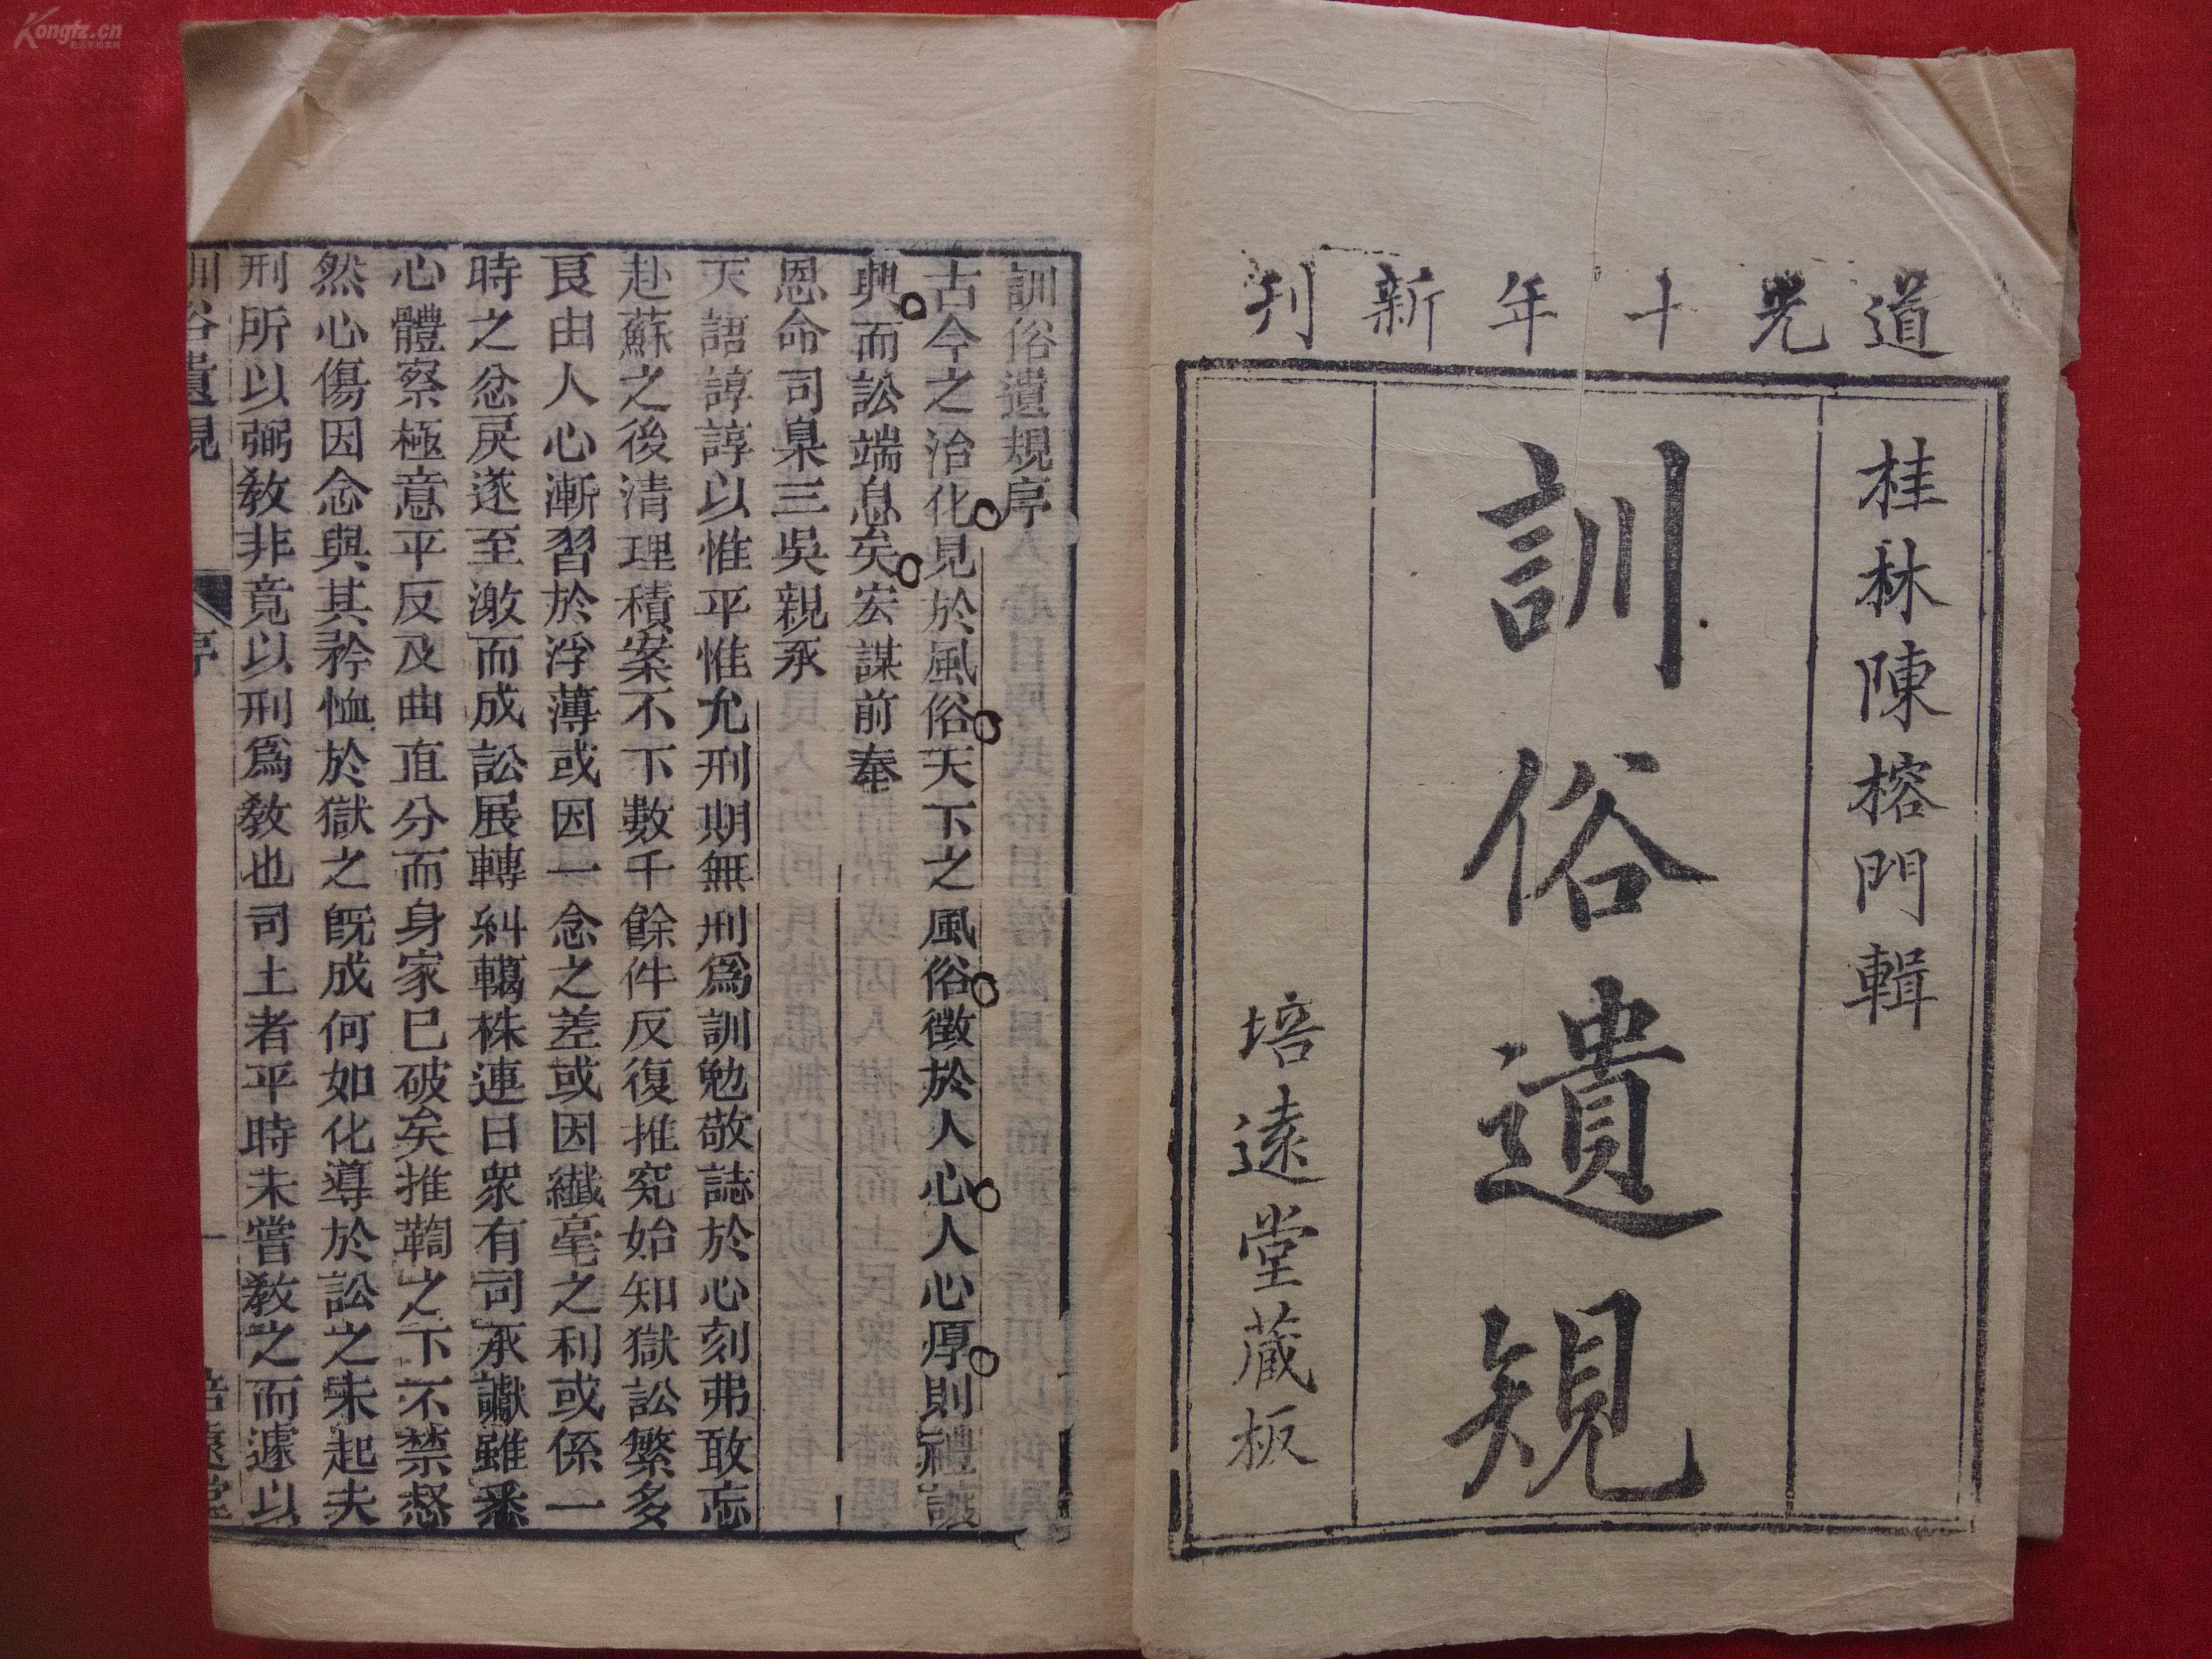 道光十年新刊
桂林陳榕門輯
訓俗遺規
培遠堂藏板
訓俗遺規序
古今之治化見於風俗天下之風俗徵於人心人心厚則禮讓
興而訟端息矣宏謀前奉
恩命司臬三吳親承
天語諄諄以惟平惟允刑期無刑為訓勉敬誌於心刻弗敢忘
赴蘇之後清理積案不下數千餘件反復推究始知獄訟繁多
良由人心漸習於浮薄或因一念之差或因纖毫之利或係一
時之忿戾遂至激而成訟展轉糾轕株連日眾有司承讞雖悉
心體察極意平反及曲直分而身家已破矣推鞫之下不禁惄
然心傷因念與其矜恤於獄之既成何如化導於訟之未起夫
刑所以弼教非竟以刑為教也司土者平時未嘗教之而遽以
訓俗遺規
序
一
培遠堂
Kongfz.cn